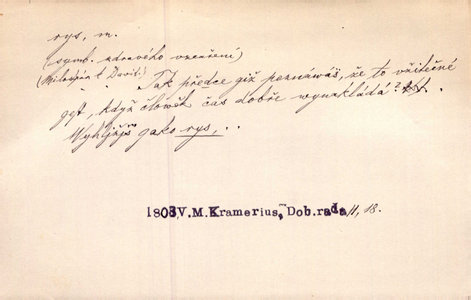 rys, m.
(symb. zdravého vzezření)
(Miloslav k Davit.)
Tak předce giž poznáwáš, že to vžitečné
gest, když člowěk čas dobře wynakládá?
Wyhljžjš gako rys, . .
1803 V. M. Kramerius, Dob. rada II, 18.